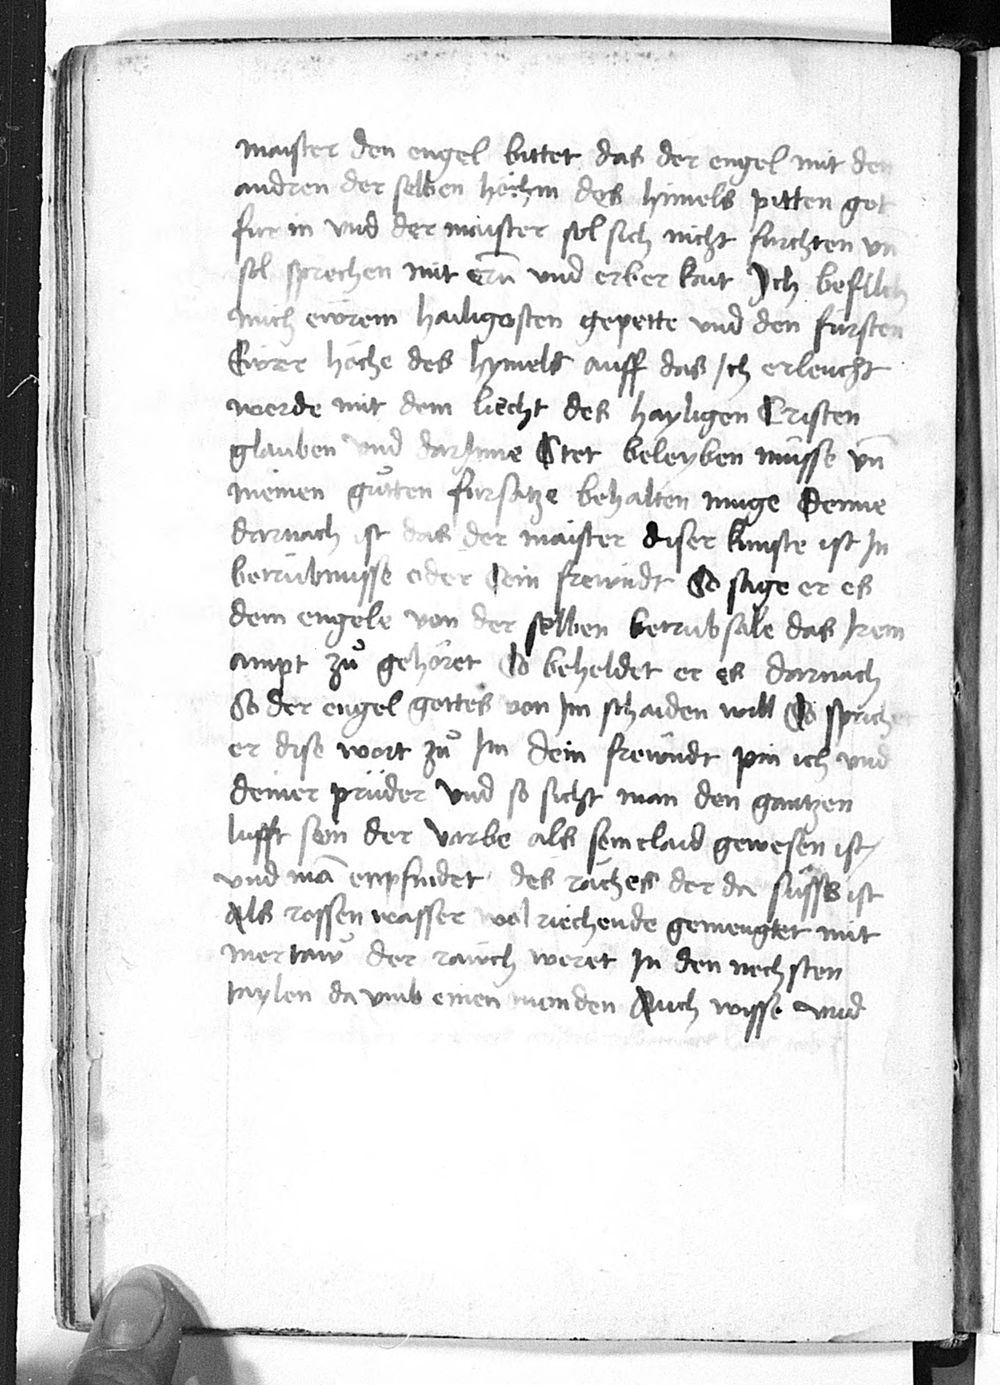 maister den engel bittet das der engel mit den
andren der selben höchin des himels pitten got
fur in vnd der maister sol sich nicht furchten vn
sol sprechen mit ern̄ vnd erber kait Ich befilch
mich ewrem hailigosten gepette vnd den fursten
Ewrer höche des hymels auff das Ich erleucht
werde mit dem liecht des hayligen Cristen
glauben vnd darInne Stet beleyben müsse vn̄
meinen gůtten fursatze behalten muge Denne
darnach ist das der maister diser kunste ist In
betrubnusse oder sein frewndt So sage er es
dem engele von der selben betrubsale das Irem
ampt zů gehöret So beheldet er es darnach
So der engel gottes von Im schaiden will So spricht
er dise wort zů Im dein frewndt pin ich vnd
deiner prüder Vnd so sicht man den gantzen
lufft sein der varbe als sein claid gewesen ist
vnd mā enpfindet des raches der da süsses ist
Als rossen wasser wol riechende gemengtet mit
mertaw der rawch weret In den nechsten
taylen da vmb einen menden Auch wisse vnd